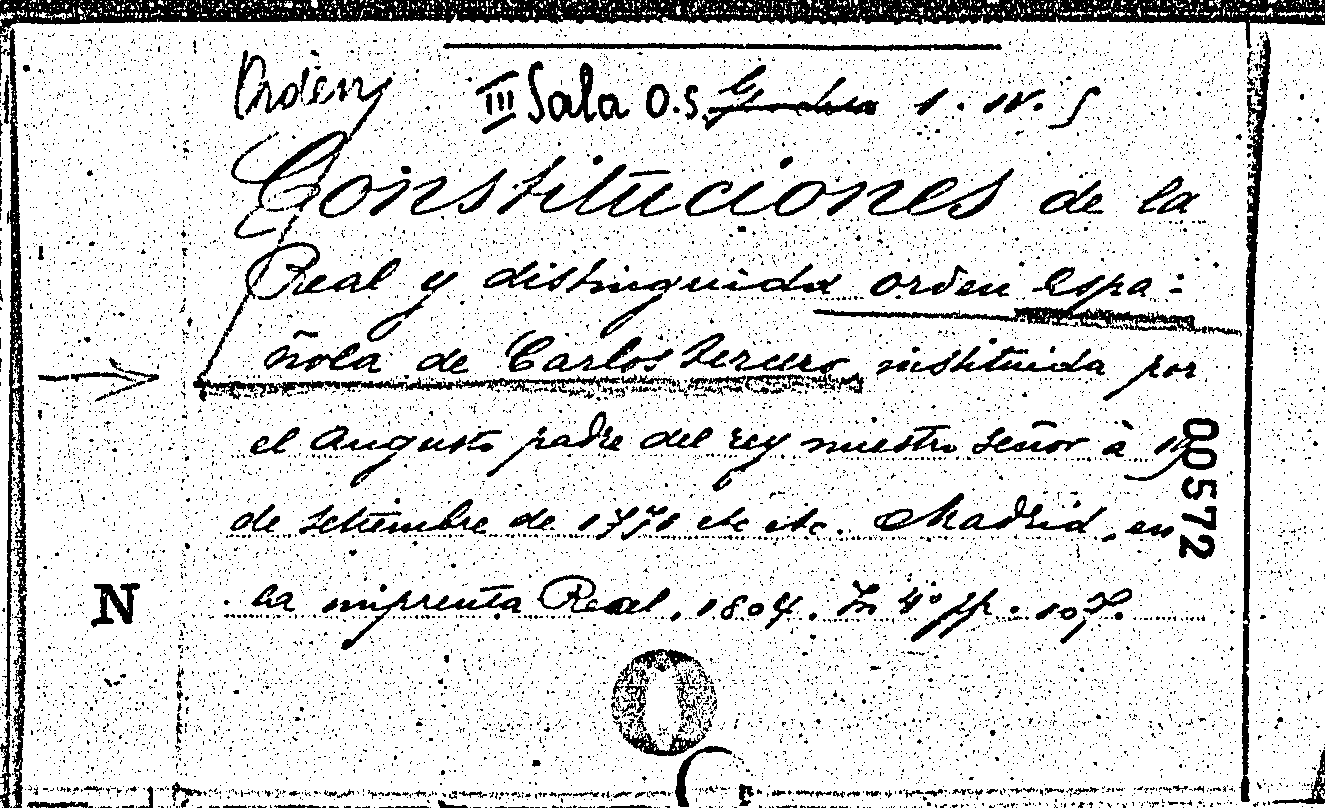 Orden III Sala O.S. 1. IV. 5
Constituciones de la
Real y distinguida orden espa-
ñola de Carlos tercero, instituida por
el augusto padre del rey nuestro señor à 19
de setiembre de 1771 etc etc. Madrid, en
la imprenta Real, 1804. In 4º pp. 107.
00572
N